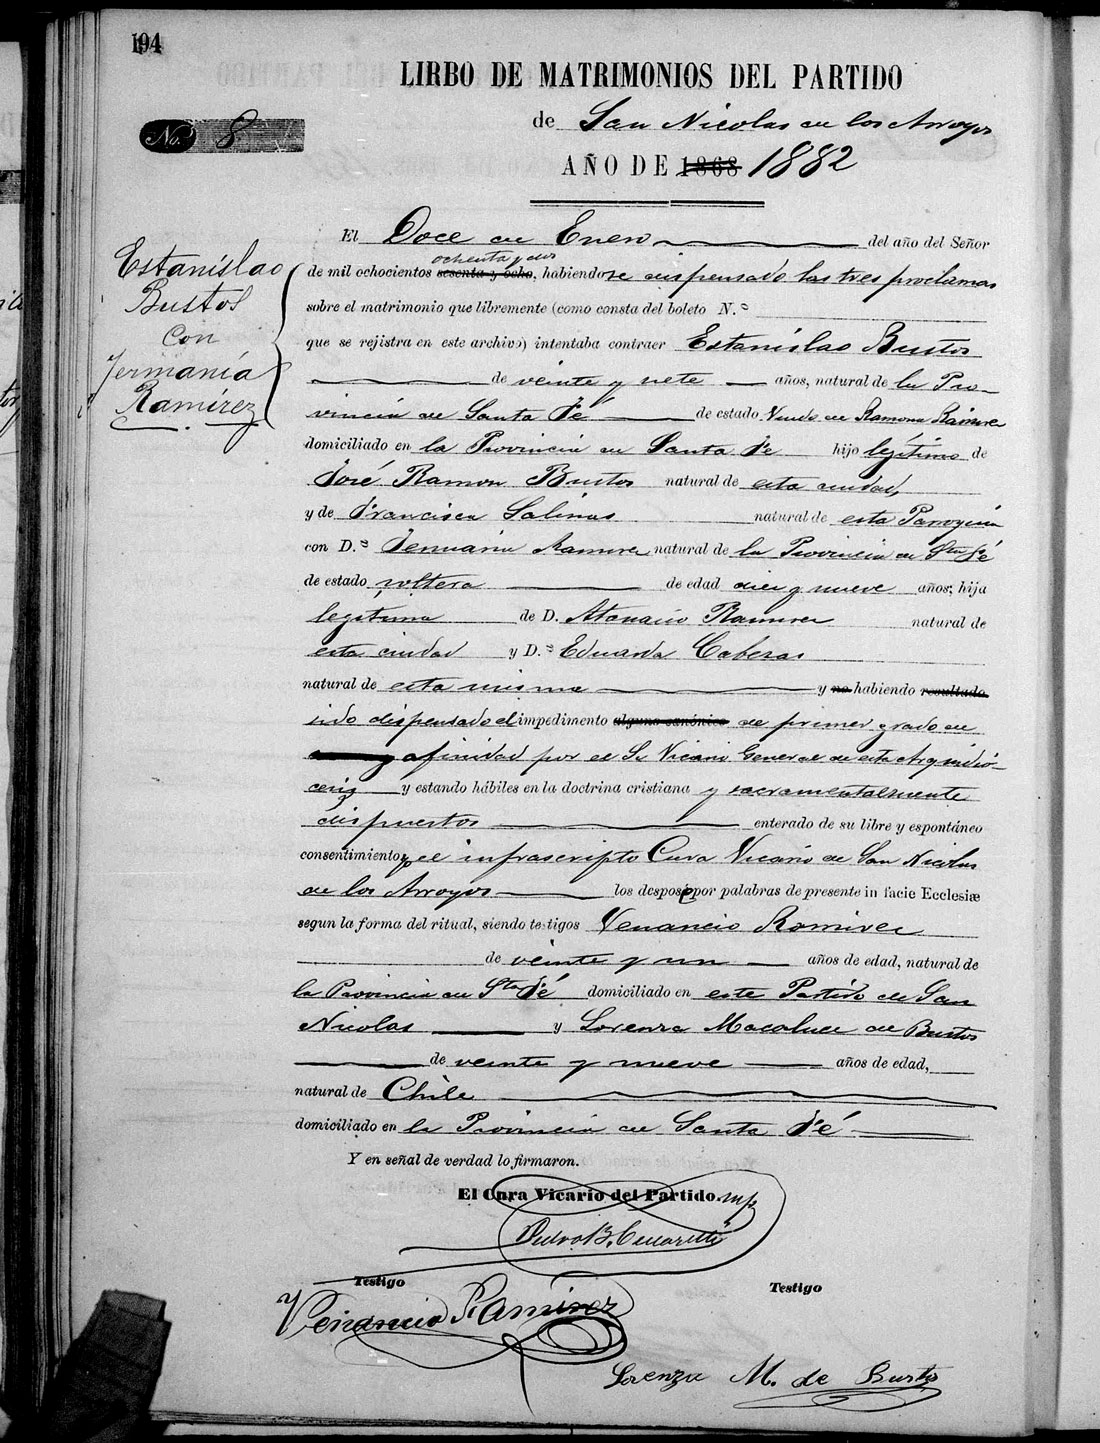 194
LIRBO DE MATRIMONIOS DEL PARTIDO
de San Nicolas de los Arroyos
No. 8
AÑO DE 1868 1882
El Doce de Enero del año del Señor
de mil ochocientos sesenta y ocho ochenta y dos, habiendose dispensado las tres proclamas
sobre el matrimonio que libremente (como consta del boleto N.º
que se rejistra en este archivo) intentaba contraer Estanislao Bustos
de veinte y siete años, natural de la Pro-
vincia de Santa Fé de estado Viudo de Ramona Ramirez
domiciliado en la Provincia de Santa Fe hijo legítimo de
José Ramon Bustos natural de esta ciudad,
y de Francisca Salinas natural de esta Parroquia
con D.ª Jenuaria Ramirez natural de la Provincia de Sta Fé
de estado soltera de edad diez y nueve años; hija
legítima de D. Atanacio Ramirez natural de
esta ciudad y D.ª Eduarda Cabezas
natural de esta misma y no habiendo resultado
sido dispensado el impedimento alguno canónico de primer grado de
afinidad por el Sr Vicario General de esta Arquidió-
cesis y estando hábiles en la doctrina cristiana y sacramentalmente
dispuestos enterado de su libre y espontáneo
consentimiento, el infrascripto Cura Vicario de San Nicolas
de los Arroyos los desposé por palabras de presente in facie Ecclesiæ
segun la forma del ritual, siendo testigos Venancio Ramirez
de veinte y un años de edad, natural de
la Provincia de Sta Fé domiciliado en este Partido de San
Nicolas y Lorenza Macaluce de Bustos
de veinte y nueve años de edad,
natural de Chile
domiciliado en la Provincia de Santa Fé
Y en señal de verdad lo firmaron.
El Cura Vicario del Partido
Pedro B. Ceccarelli
Testigo Testigo
Venancio Ramirez
Lorenza M. de Bustos
Estanislao
Bustos
Con
Jermania
Ramírez